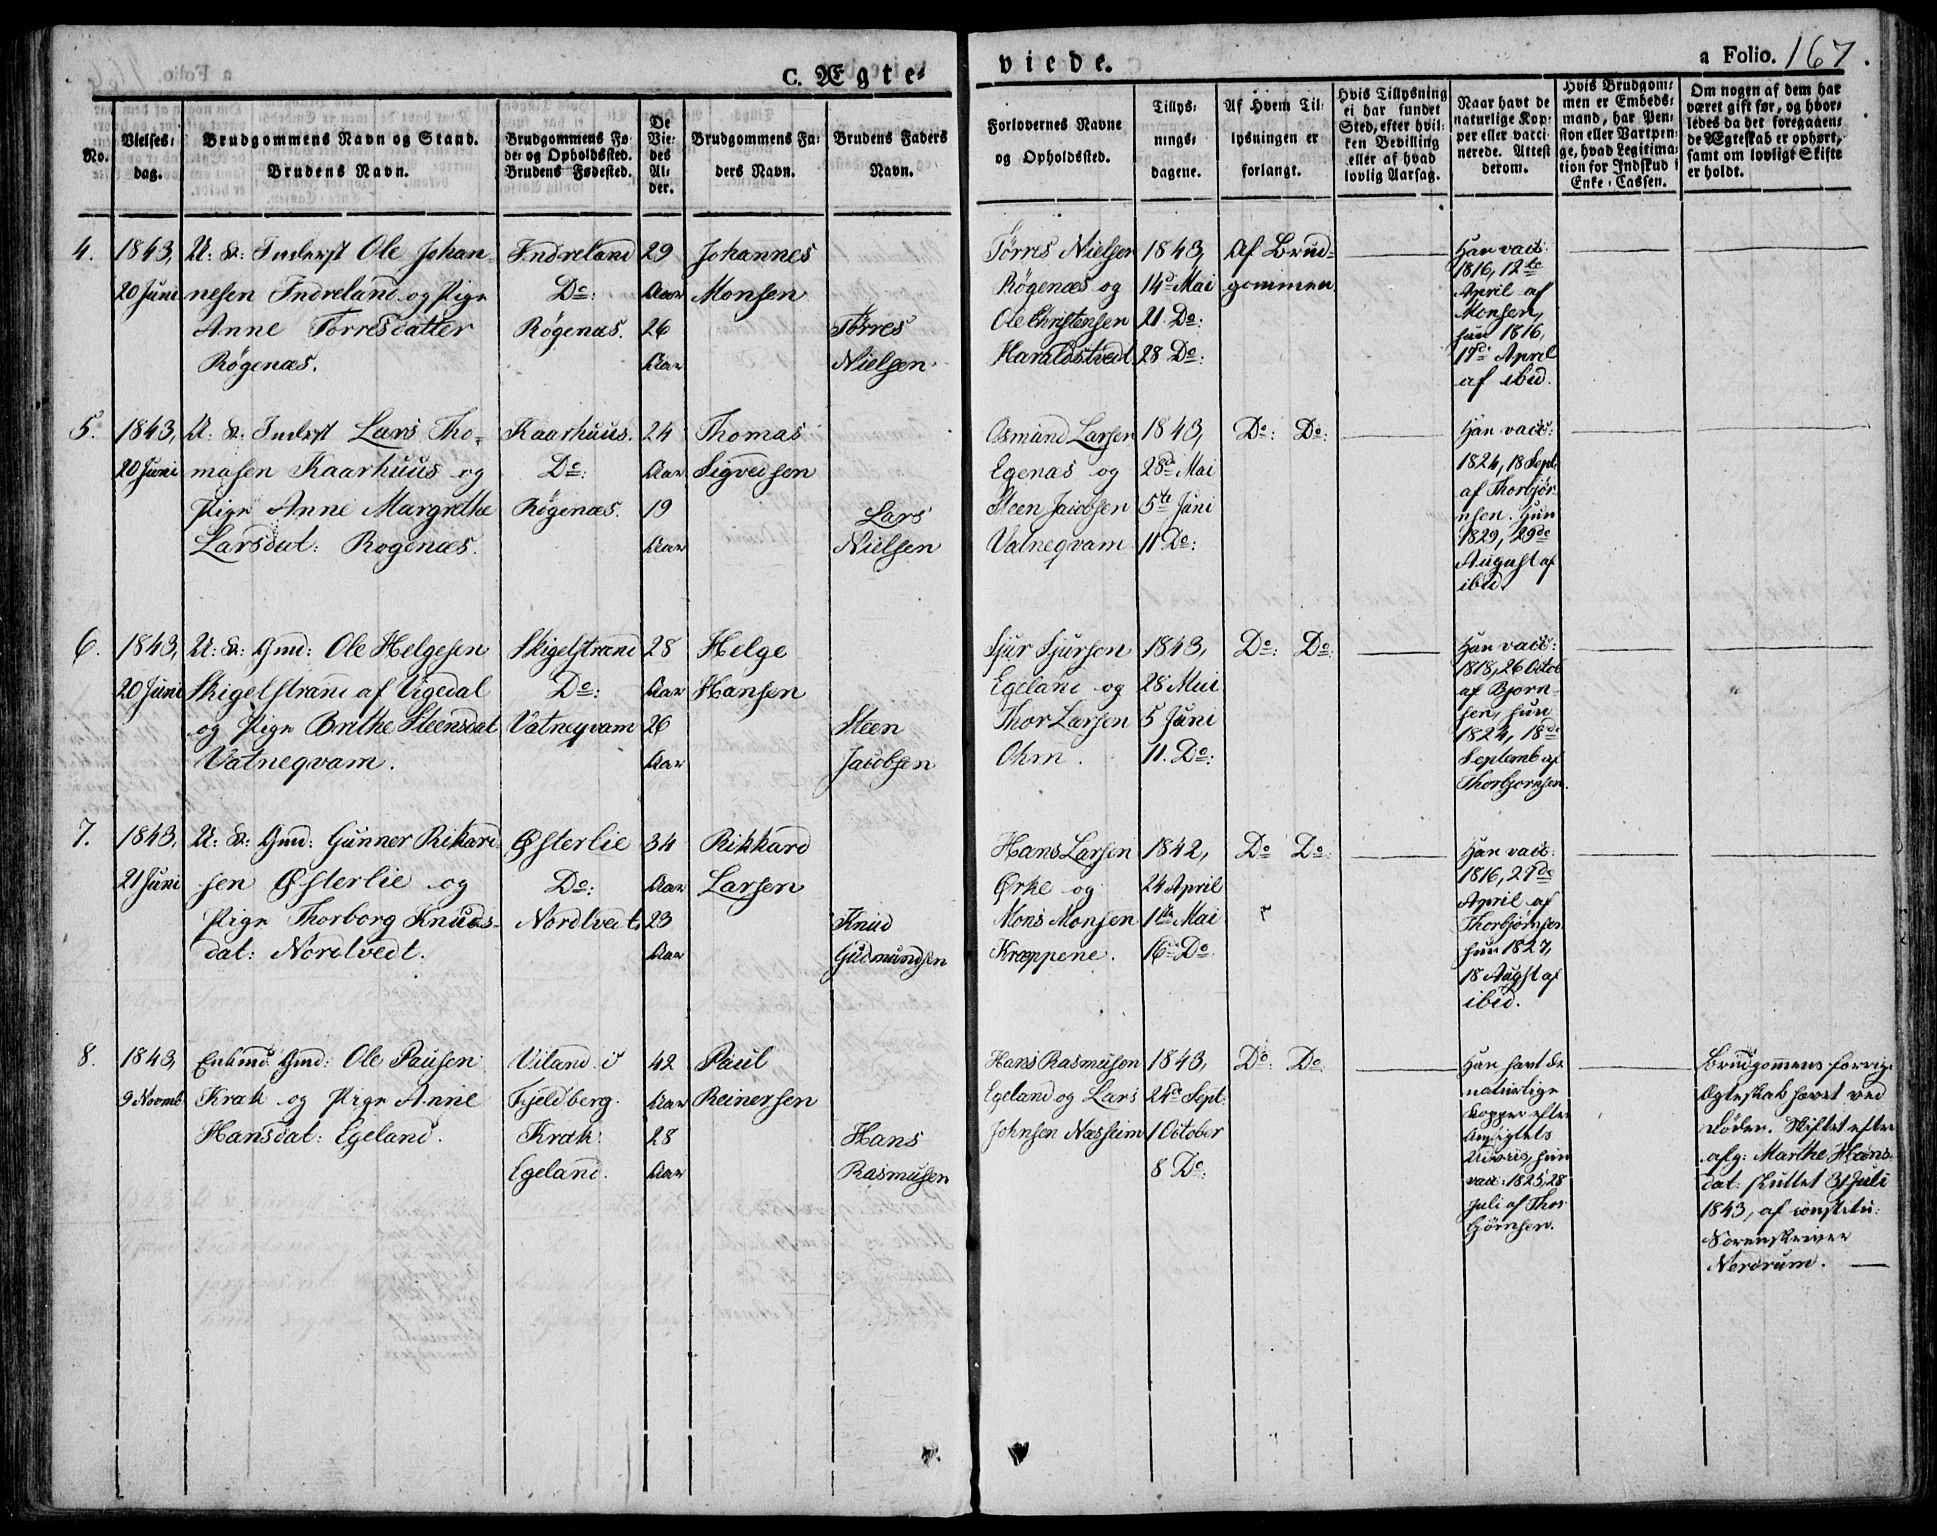 C. Ægte-
viede.
a Folio. 167.
No.
Vielses-
dag.
Brudgommens Navn og Stand.
Brudens Navn.
Brudgommens Fø-
de- og Opholdssted.
Brudens Fødested.
De
Vie-
des
Al-
der.
Brudgommens Fa-
ders Navn.
Brudens Faders
Navn.
Forlovernes Navne
og Opholdssted.
Tillys-
nings-
dagene.
Af Hvem Til-
lysningen er
forlangt.
Hvis Tillysning
ei har fundet
Sted, efter hvil-
ken Bevilling
eller af hvad
lovlig Aarsag.
Naar havt de
naturlige Kop-
per eller vacci-
nerede. Attest
derom.
Hvis Brudgom-
men er Embeds-
mand, har Pen-
sion eller Vartpen-
ge, hvad Legitima-
tion for Indskud i
Enke-Cassen.
Om nogen af dem har
været gift før, og hvor-
ledes da det foregaaen-
de Ægteskab er ophørt,
samt om lovligt Skifte
er holdt.
4.
1843,
20 Juni
U: K: Inderst Ole Johan-
nesen Indreland og Pige
Anne Torresdatter
Røgenæs.
Indreland
Do:
Røgenæs.
29
Aar
26
Aar
Johannes
Monsen
Tørres
Nielsen.
Tørres Nielsen
Røgenæs og
Ole Christensen
Haraldstvedt
1843,
14de Mai
21. Do:
28 Do:
Af Brud-
gommen
Han vacc:
1816, 12te
April af
Monsen,
hun 1816,
17de April
af ibid.
5.
1843,
20 Juni
U: K: Inderst Lars Tho-
masen Kaarhuus og
Pige Anne Margrethe
Larsdat: Rogenæs.
Kaarhuus.
Do:
Røgenæs.
24
Aar
19
Aar
Thomas
Sigvedsen
Lars
Nielsen
Osmund Larsen
Egenæs og
Steen Jacobsen
Vatneqvam
1843,
28de Mai
5te Juni
11 Do:
Do: Do:
Han vacc:
1824, 18 Sept:
af Thorbjør-
nsen. Hun
1829, 29de
August af
ibid.
6.
1843,
20 Juni
U: K: Gmd: Ole Helgesen
Skigelstrand af Vigedal
og Pige Brithe Steensdat
Vatneqvam.
Skigelstrand
Do:
Vatneqvam
28
Aar
26
Aar
Helge
Hansen
Steen
Jacobsen
Sjur Sjursen
Egeland og
Thor Larsen
Ohm.
1843,
28 Mai
5 Juni
11. Do:
Do: Do:
Han vacc:
1818, 26 Octob
af Bjørn-
sen, hun
1824, 18de
Septemb af
Thorbjørnsen.
7.
1843,
21 Juni
U: K: Gmd: Gunner Rikard-
sen Østerlie og
Pige Thorborg Knuds-
dat: Nordtvedt.
Østerlie
Do:
Nordtvedt.
34
Aar
23
Aar
Rikkard
Larsen
Knud
Gudmundsen
Hans Larsen
Ørke og
Mons Monsen
Kræppene.
1842,
24 April
1te Mai
16 Do
Do Do:
Han vacc:
1816, 27de
April af
Thorbjørnsen
hun 1827,
18 Augst af
ibid.
8.
1843,
9 Novmb
Enkmd Gmd: Ole Paulsen
Krak og Pige Anne
Hansdat: Egeland.
Viland i
Fjeldberg.
Krak.
Egeland.
42
Aar
28
Aar
Paul
Reinersen
Hans
Rasmusen
Hans Rasmusen
Egeland og Lars
Johnsen Næsheim
1843,
24de Sept.
1 October
8 Do:
Do: Do:
Han havt de
naturlige
Kopper efter
Ansigtets
Udviis, hun
vacc: 1825, 28
Juli af Thor-
bjørnsen.
Brudgommens forrige
Ægteskab hævet ved
Døden. Skiftet efter
afg: Marthe Hans-
dat: sluttet 31 Juli
1843, af constitu:
Sorenskriver
Nordrum.